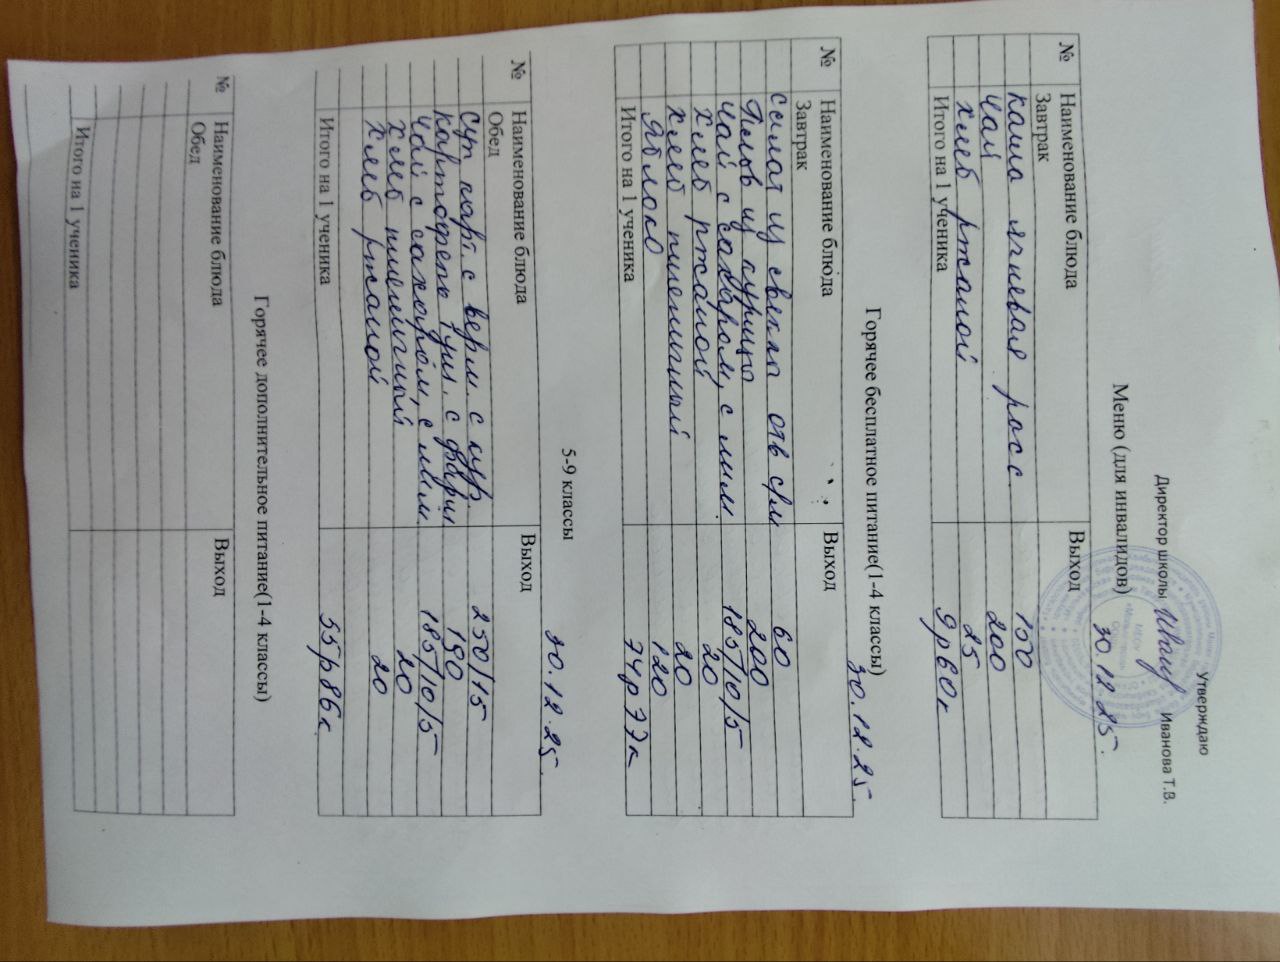 Утверждаю
Директор школы Иванова Т.В.
Меню (для инвалидов) 30.12.25.
№ Наименование блюда Выход
Завтрак
каша ячневая расс 150
чай 200
хлеб ржаной 25
Итого на 1 ученика 9р60к
Горячее бесплатное питание(1-4 классы) 30.12.25.
№ Наименование блюда Выход
Завтрак
салат из свеклы отв с р/м 60
Плов из курицы 200
чай с сахаром, с лим. 185/10/5
хлеб ржаной 20
хлеб пшеничный 20
Яблоко 120
Итого на 1 ученика 74р 77к
5-9 классы 30.12.25.
№ Наименование блюда Выход
Обед
суп карт. с верм. с кур. 250/15
картофель туш. с фарш 190
чай с сахаром, с лим. 185/10/5
хлеб пшеничный 20
хлеб ржаной 20
Итого на 1 ученика 55р86к.
Горячее дополнительное питание(1-4 классы)
№ Наименование блюда Выход
Обед
Итого на 1 ученика